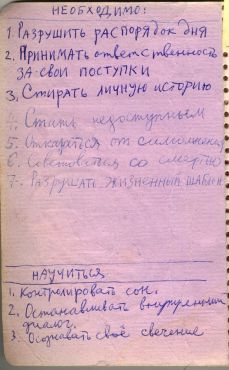 НЕОБХОДИМО:
1. РАЗРУШИТЬ РАСПОРЯДОК ДНЯ
2. ПРИНИМАТЬ ОТВЕТСТВЕННОСТЬ
ЗА СВОИ ПОСТУПКИ
3. СТИРАТЬ ЛИЧНУЮ ИСТОРИЮ
4. Стать недоступным
5. Отказаться от самомнения
6. Советоваться со смертью
7. Разрушать жизненный шаблон
НАУЧИТЬСЯ
1. Контролировать сон.
2. Останавливать внутренний
диалог.
3. Осознавать своё свечение